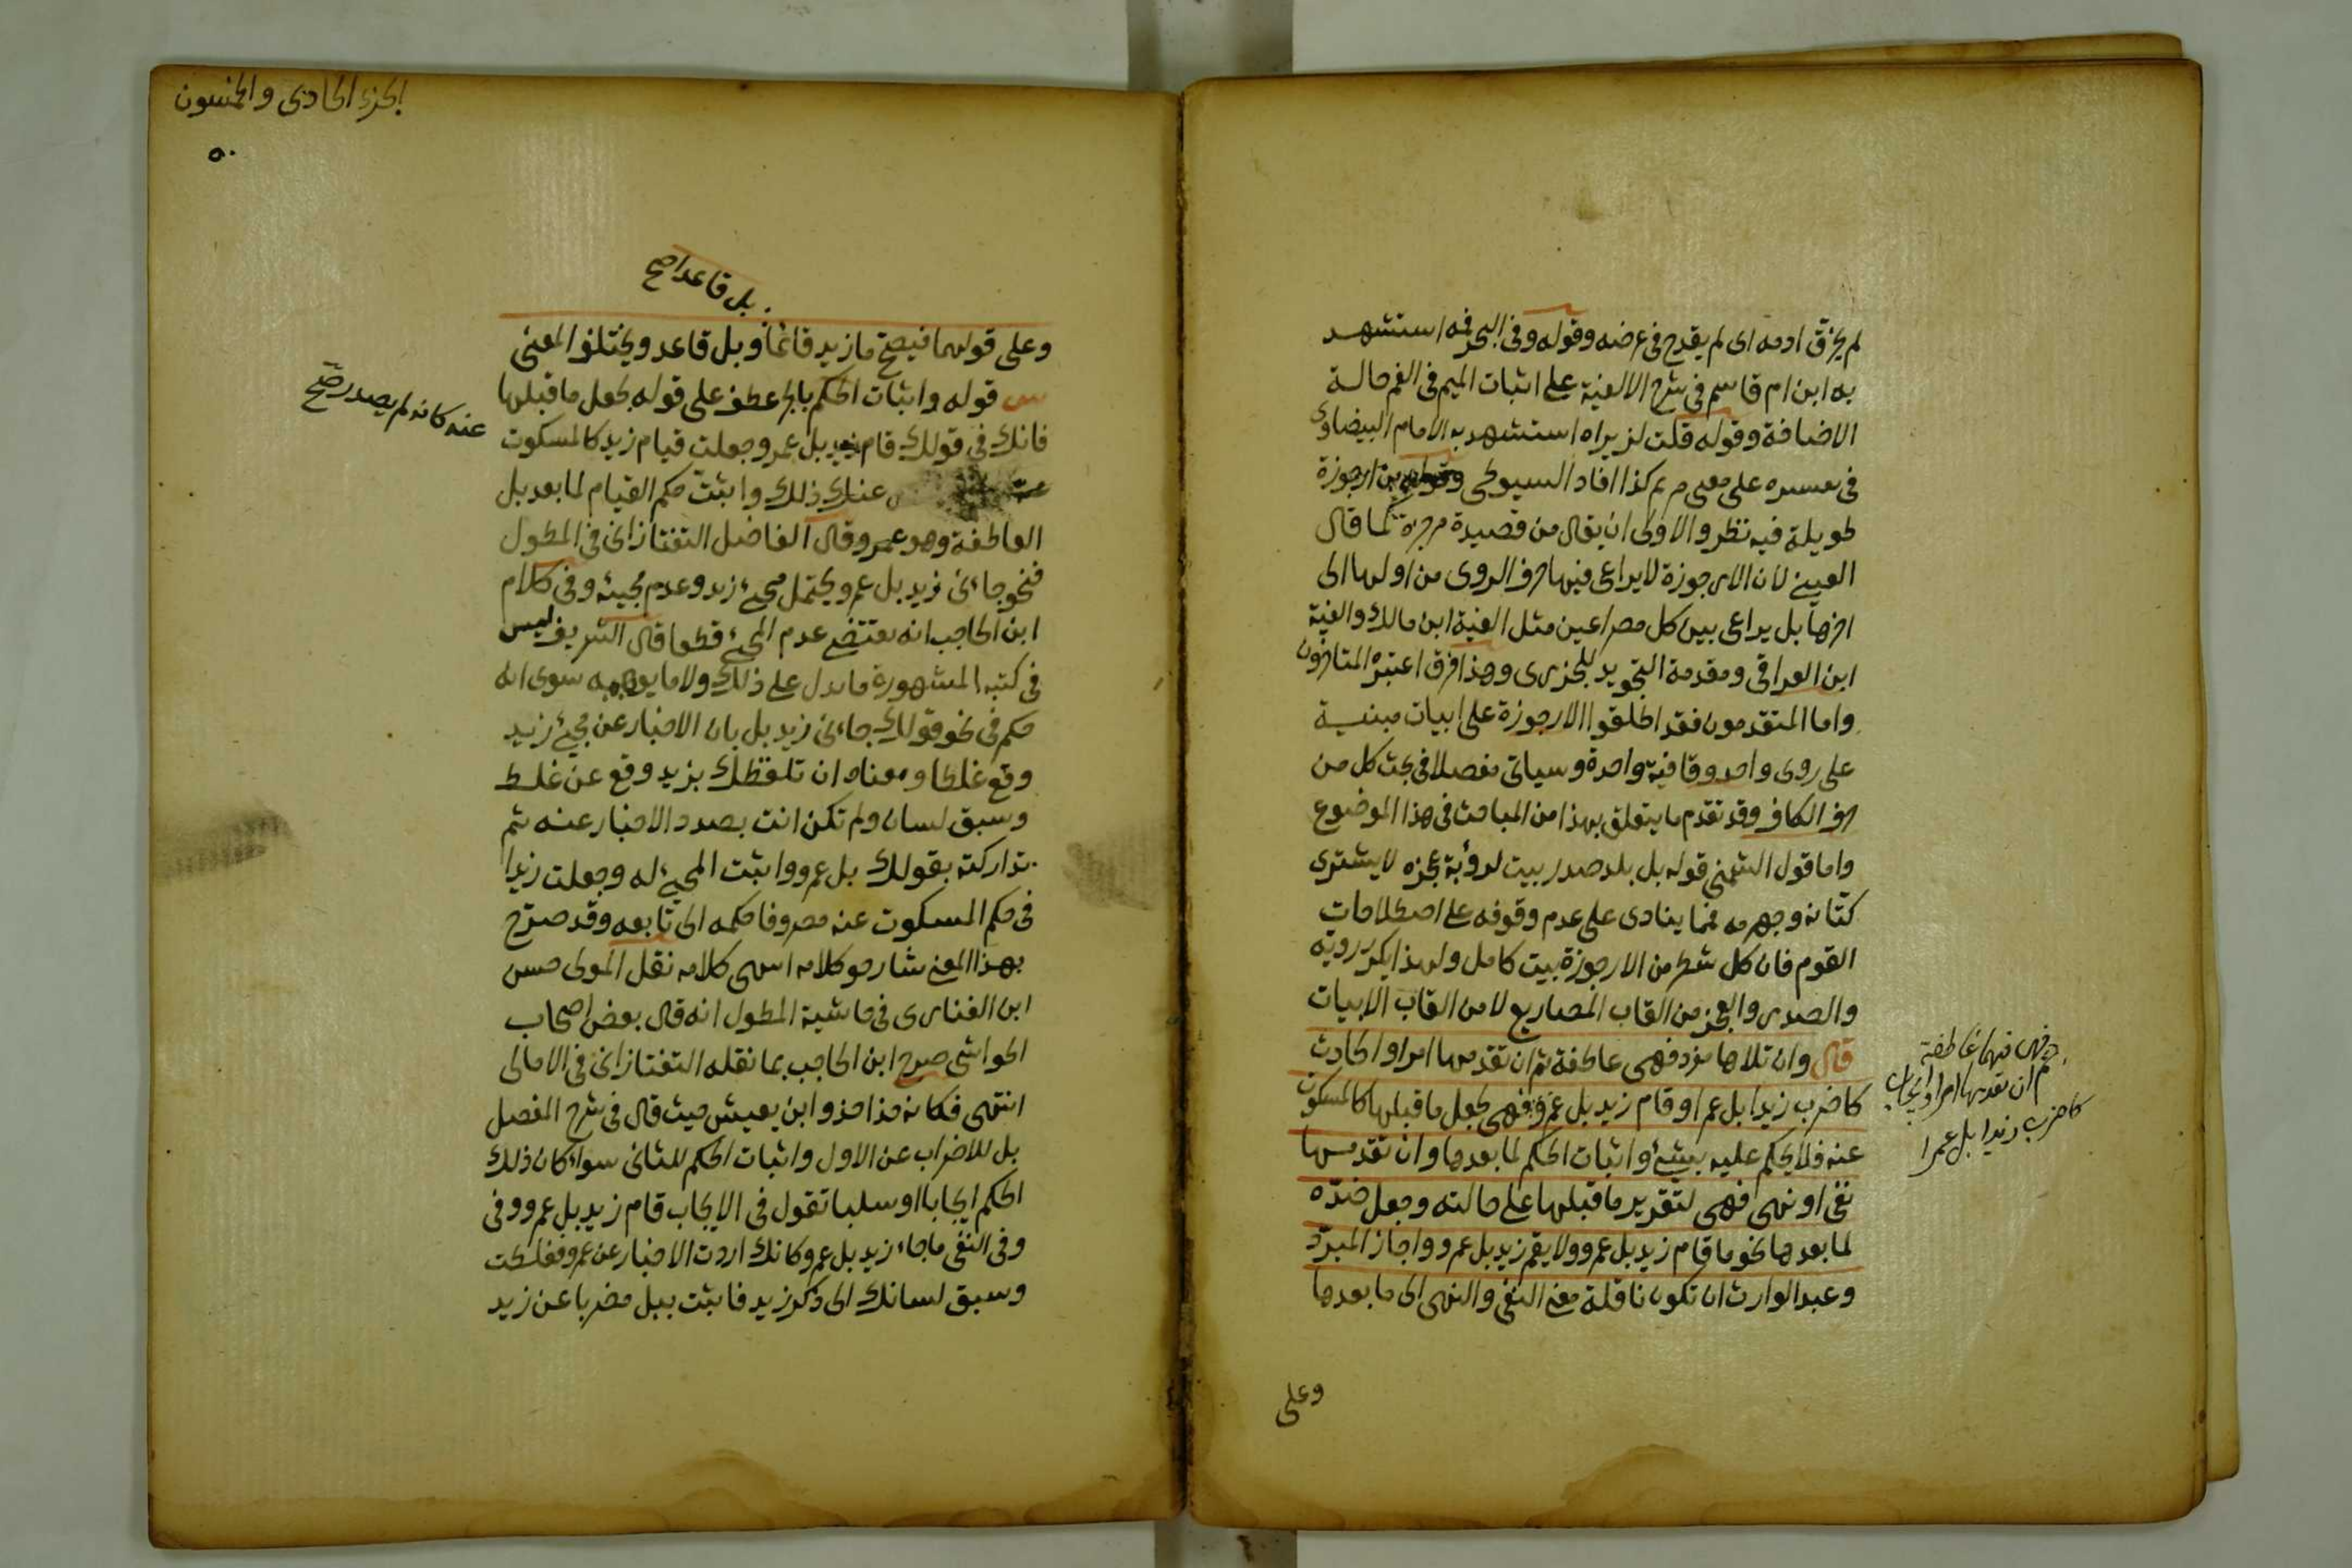 لم يخرّق ادمه اى لم يقدح فى عرضه وقوله وفى البحر فمه استشهد
به ابن ام قاسم فى شرح الالفية على اثبات الميم فى الفم حالة
الاضافة وقوله قلت لزير استشهد به الامام البيضاوى
فى تفسيره على معنى مريم كذا افاد السيوطى من ارجوزة
طويلة فيه نظر والاولى ان يقال من قصيدة مرجزة كما قال
العينى لان الارجوزة لا يراعى فيها حرف الروى من اولها الى
اخرها بل يراعى بين كل مصراعين مثل الفية ابن مالك والفية
ابن العراقى ومقدمة التجويد للجزرى وهذا فرق اعتبره المتاخرون
واما المتقدمون فقد اطلقوا الارجوزة على ابيات مبنية
على روى واحد وقافية واحدة وسياتى مفصلا فى بحث كل من
حرف الكاف وقد تقدم ما يتعلق بهذا من المباحث فى هذا الموضوع
واما قول الشمنى قوله بل بلد صدر بيت لرؤبة عجزه لا يشترى
كتانه وجهرمه فمما ينادى على عدم وقوفه على اصطلاحات
القوم فان كل شطر من الارجوزة بيت كامل ولهذا يكرر رويه
والصدر والعجز من القاب المصاريع لا من القاب الابيات
قال وان تلاها مفرد فهى عاطفة ثم ان تقدمها امر او ايجاب
كاضرب زيدا بل عمرا او قام زيد بل عمرو فهى تجعل ما قبلها كالمسكوت
عنه فلا يحكم عليه بشئ واثبات الحكم لما بعدها وان تقدمها
نفى او نهى فهى لتقرير ما قبلها على حالته وجعل ضدّه
لما بعدها نحو ما قام زيد بل عمرو ولا يقم زيد بل عمرو واجاز المبرّد
وعبد الوارث ان تكون ناقلة معنى النفى والنهى الى ما بعدها
فهى فيها عاطفة
ثم ان تقدمها امر او ايجاب
كاضرب زيدا بل عمرا
وعلى
الجزء الحادى والخمسون
٥٠
بل قاعدا صح
وعلى قولهما فيصح ما زيد قائما وبل قاعد ويختلف المعنى
قوله واثبات الحكم بالجر عطف على قوله بجعل ما قبلها
فانك فى قولك قام زيد بل عمرو جعلت قيام زيد كالمسكوت
عنه كانه لم يصدر صح
عنك ذلك واثبتّ حكم القيام لما بعد بل
العاطفة وهو عمرو وقال الفاضل التفتازانى فى المطول
فنحو جاءنى زيد بل عمرو يحتمل مجئ زيد وعدم مجيئه وفى كلام
ابن الحاجب انه يقتضى عدم المجئ قطعا قال الشريف ليس
فى كتبه المشهورة ما يدل على ذلك ولا ما يوهمه سوى انه
حكم فى نحو قولك جاءنى زيد بل بان الاخبار عن مجئ زيد
وقع غلطا ومعناه ان تلفظك بزيد وقع عن غلط
وسبق لسان ولم تكن انت بصدد الاخبار عنه ثم
تداركته بقولك بل عمرو واثبت المجئ له وجعلت زيدا
فى حكم المسكوت عنه مصروفا حكمه الى تابعه وقد صرّح
بهذا المعنى شارحو كلامه انتهى كلامه نقل المولى حسن
ابن الفنارى فى حاشية المطول انه قال بعض اصحاب
الحواشى صرح ابن الحاجب بما نقله التفتازانى فى الامالى
انتهى فكانه حذا حذو ابن يعيش حيث قال فى شرح المفصل
بل للاضراب عن الاول واثبات الحكم للثانى سواء كان ذلك
الحكم ايجابا او سلبا تقول فى الايجاب قام زيد بل عمرو وفى
وفى النفى ما جاء زيد بل عمرو كانك اردت الاخبار عن عمرو فغلطت
وسبق لسانك الى ذكر زيد فاثبت ببل مضربا عن زيد